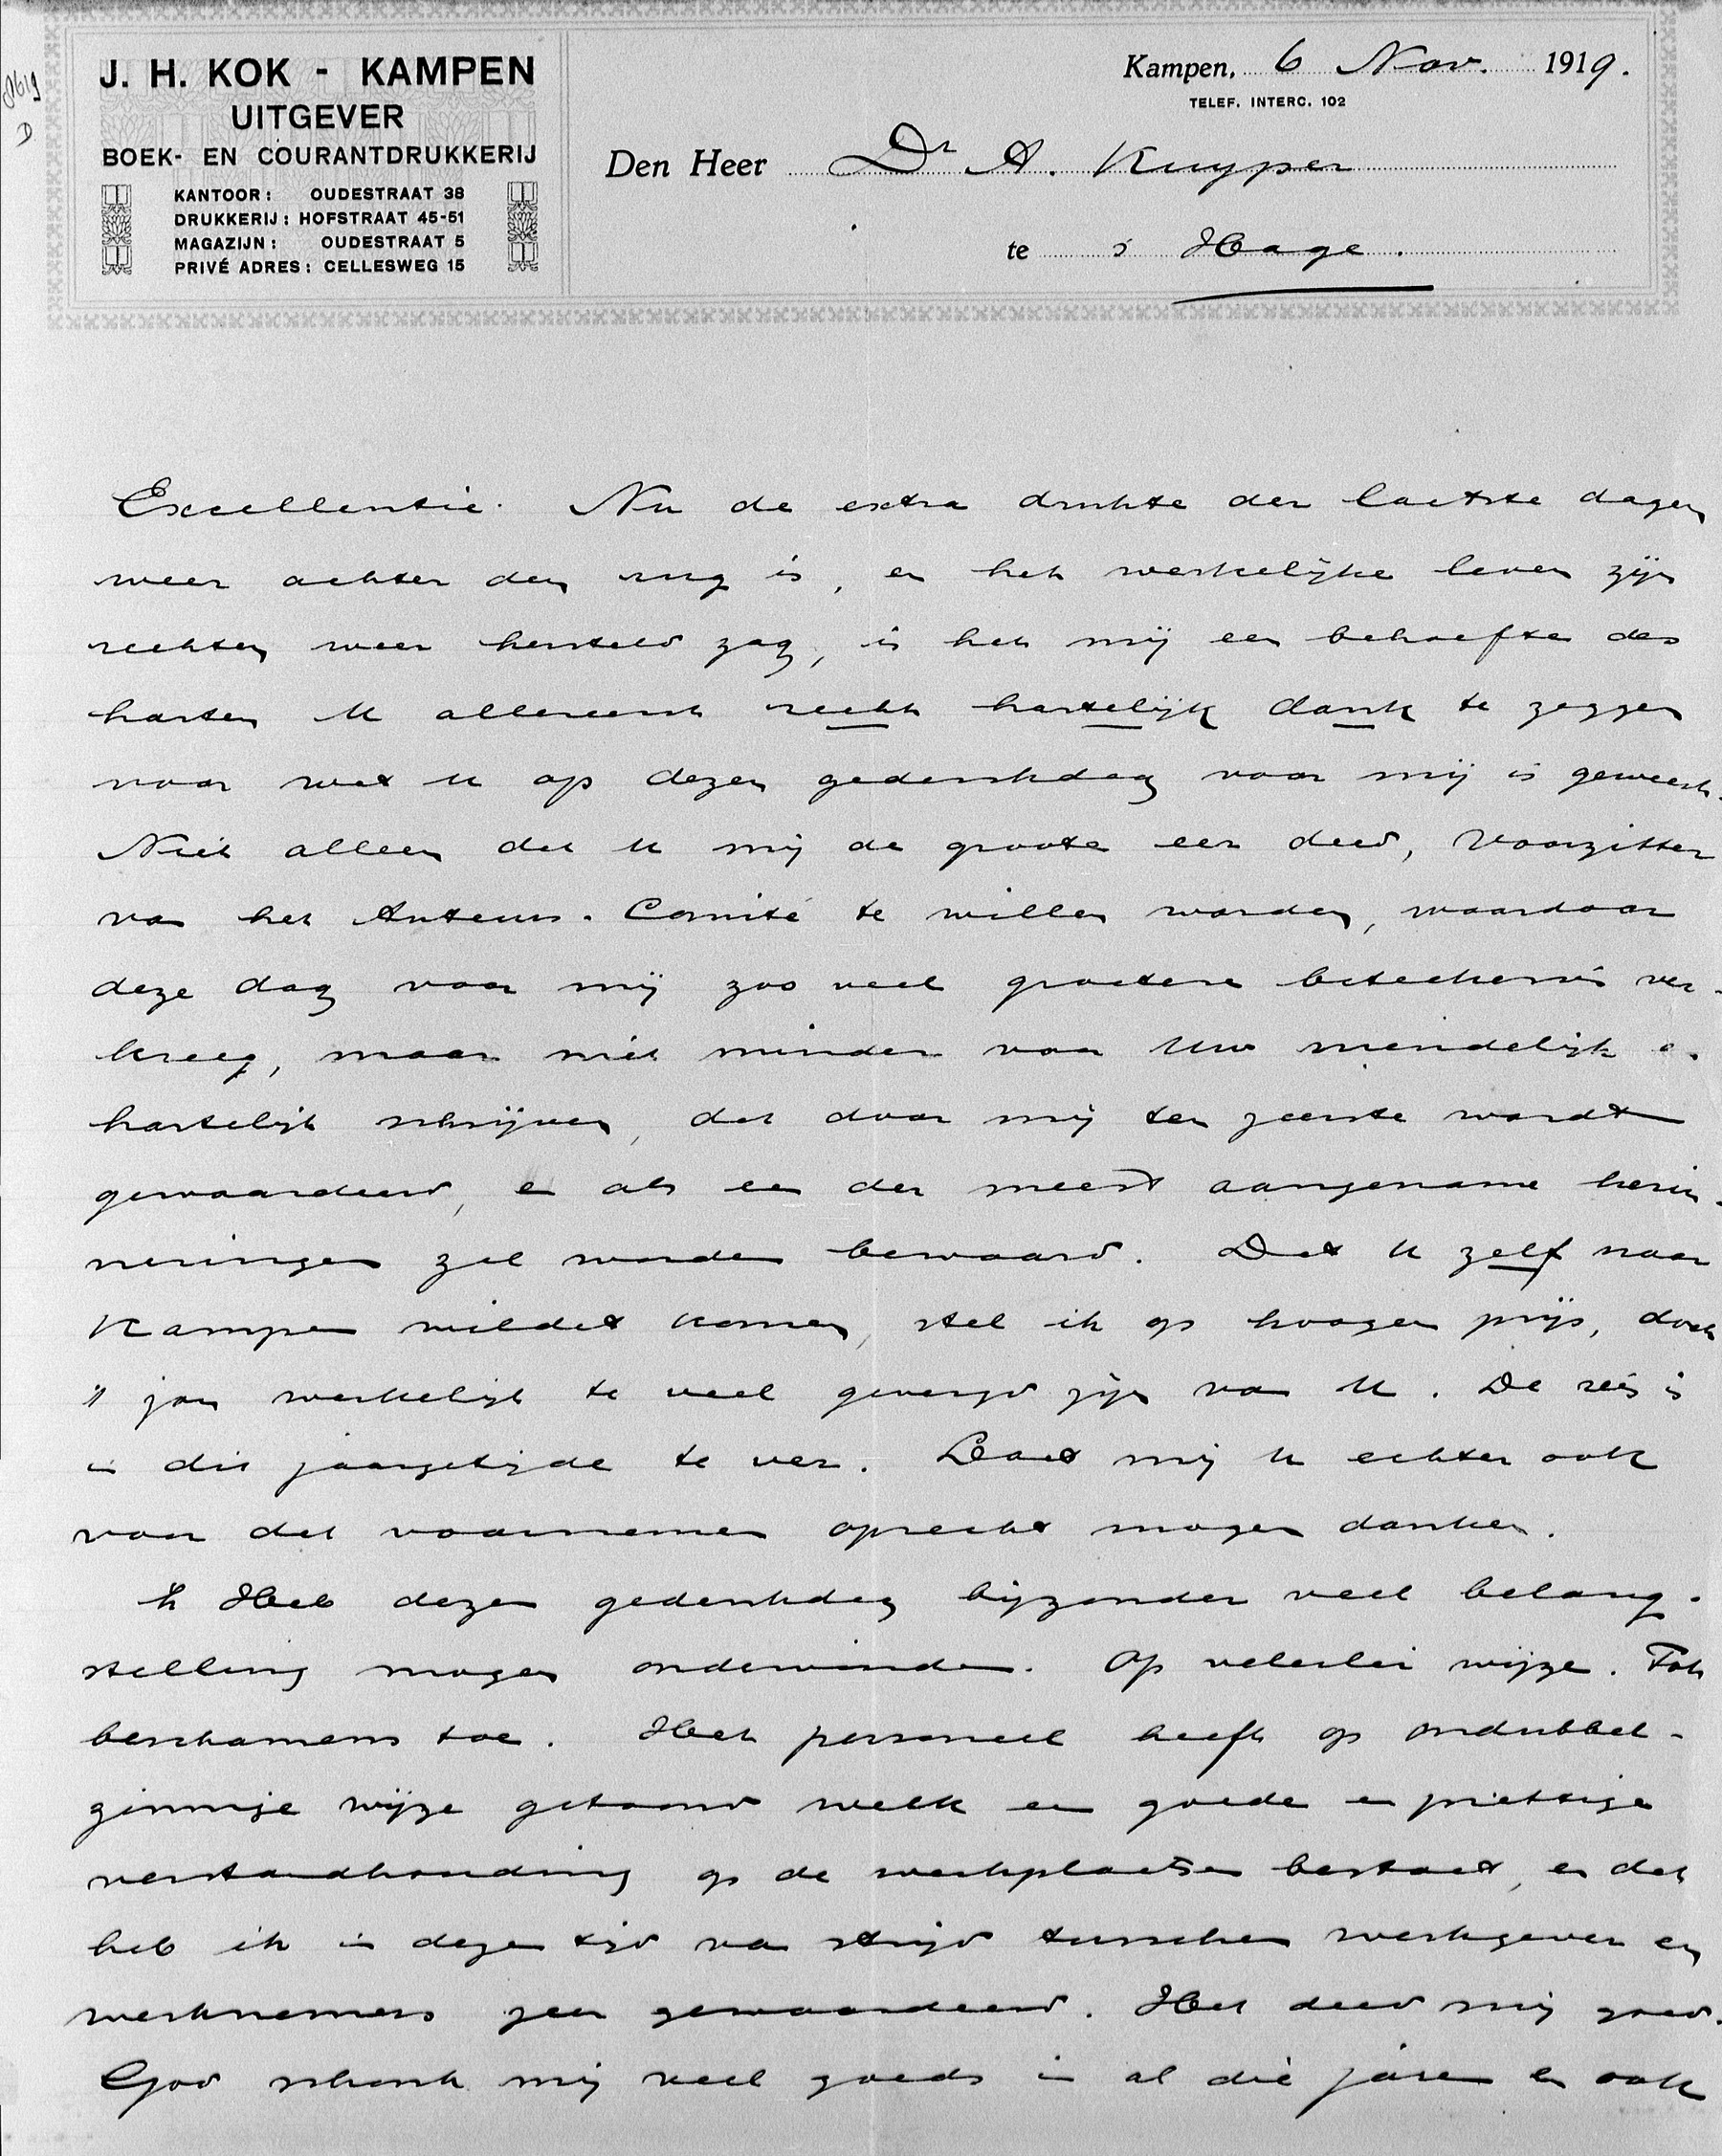 J. H. KOK - KAMPEN
UITGEVER
BOEK- EN COURANTDRUKKERIJ
KANTOOR: OUDESTRAAT 38
DRUKKERIJ: HOFSTRAAT 45-51
MAGAZIJN: OUDESTRAAT 5
PRIVÉ ADRES: CELLESWEG 15
Kampen, 6 Nov. 1919.
TELEF. INTERC. 102
Den Heer Dr A. Kuyper
te 's Hage.
Excellentie. Nu de extra drukte der laatste dagen
weer achter den rug is, en het werkelijke leven zijn
rechten weer hersteld zag, is het mij een behoefte des
harten U allereerst recht hartelijk dank te zeggen
voor wat U op dezen gedenkdag voor mij is geweest.
Niet alleen dat U mij de groote eer deed, Voorzitter
van het Auteurs-Comité te willen worden, waardoor
deze dag voor mij zoo veel grootere beteekenis ver-
kreeg, maar niet minder voor Uw vriendelijk en
hartelijk schrijven, dat door mij ten zeerste wordt
gewaardeerd, en als een der meest aangename herin-
neringen zal worden bewaard. Dat U zelf naar
Kampen wildet komen, stel ik op hoogen prijs, doch
't zou werkelijk te veel gevergd zijn van U. De reis is
in dit jaargetijde te ver. Laat mij U echter ook
voor dat voornemen oprecht mogen danken.
Ik Heb dezen gedenkdag bijzonder veel belang-
stelling mogen ondervinden. Op velerlei wijze. Tot
beschamens toe. Het personeel heeft op ondubbel-
zinnige wijze getoond welk een goede en prettige
verstandhouding op de werkplaatsen bestaat, en dat
heb ik in dezen tijd van strijd tusschen werkgever en
werknemers zeer gewaardeerd. Het deed mij goed.
God schonk mij veel goeds in al die jaren en ook